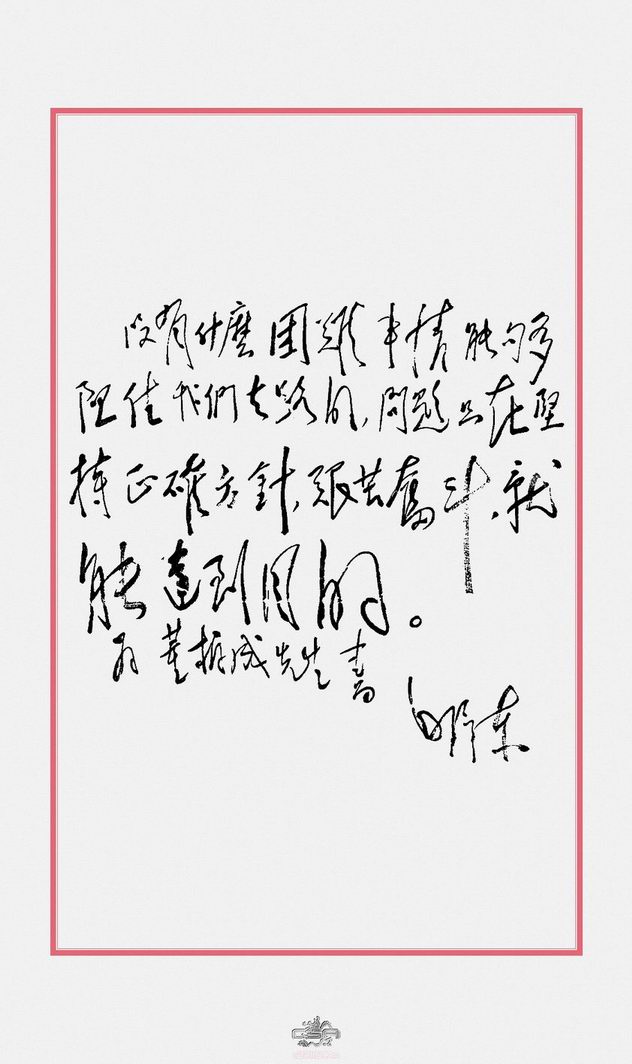 沒有什麼困難事情能够
阻住我們去路的，問題只在堅
持正確方針，艱苦奮斗，就
能達到目的。
為董振成先生書
明东